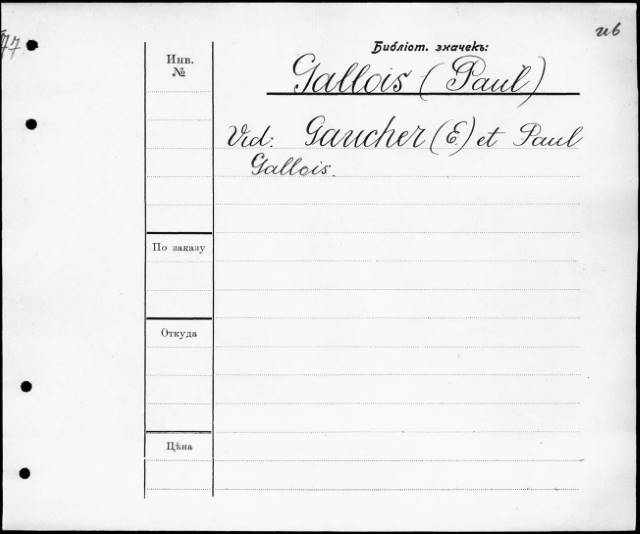 Инв.
№
Библіот. значекъ:
Gallois (Paul)
Vid: Gaucher (E.) et Paul
Gallois.
По заказу
Откуда
Цѣна